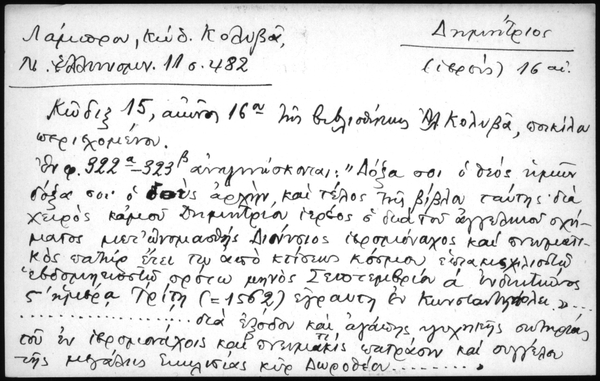 Λάμπρου, Κώδ. Κολυβᾶ,
Ν. Ἑλληνομν. 11 σ. 482
Δημήτριος
(ἱερεύς) 16 αἰ.
Κῶδιξ 15, αἰῶνος 16ου τῆς βιβλιοθήκης Κολυβᾶ, ποικίλου
περιεχομένου.
Ἐν φ. 322α-323β ἀναγινώσκονται: "Δόξα σοι ὁ θεὸς ἡμῶν
δόξα σοι ὁ δοὺς ἀρχὴν, καὶ τέλος τῆς βίβλου ταύτης διὰ
χειρὸς κἀμοῦ Δημητρίου ἱερέος ὁ διὰ τοῦ ἀγγελικοῦ σχή-
ματος μετωνομασθῆς Διονύσιος ἱερομόναχος καὶ πνευματι-
κὸς πατὴρ ἔτει τῷ ἀπὸ κτίσεως κόσμου ἑπτακισχιλιοστῷ
ἑβδομηκοστῷ πρώτῳ μηνὸς Σεπτεμβρίου ά ἰνδικτιῶνος
ς ἡμέρα Τρίτη (=1562) ἐγράφη ἐν Κωνσταντινουπόλει»....
...............διὰ ἐξόδου καὶ ἀγάπης ψυχικῆς σωτηρίας
τοῦ ἐν ἱερομονάχοις καὶ πνευματικοῖς πατράσιν καὶ συγγέλου
τῆς μεγάλης Ἐκκλησίας κὺρ Δωροθέου..........,